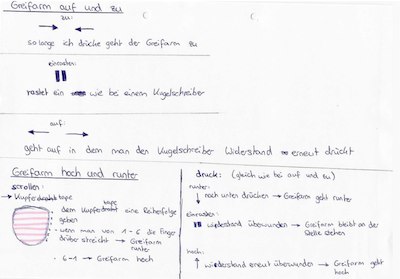 Greifarm auf und zu
zu:
→ ←
solange ich drücke geht der Greifarm zu
einrasten:
rastet ein wie bei einem Kugelschreiber
auf:
← →
geht auf in dem man den Kugelschreiber Widerstand erneut drückt
Greifarm hoch und runter
scrollen:
→ Kupfertape
tape
dem Kupferdraht eine Reihenfolge
geben
- wenn man von 1-6 die Finger
drüber streicht → Greifarm
runter
6-1 → Greifarm hoch
druck: (gleich wie bei auf und zu)
runter:
↓ nach unten drücken → Greifarm geht runter
einrasten:
widerstand überwunden → Greifarm bleibt an der
Stelle stehen
hoch:
↑ wiederstand erneut überwunden → Greifarm geht
hoch